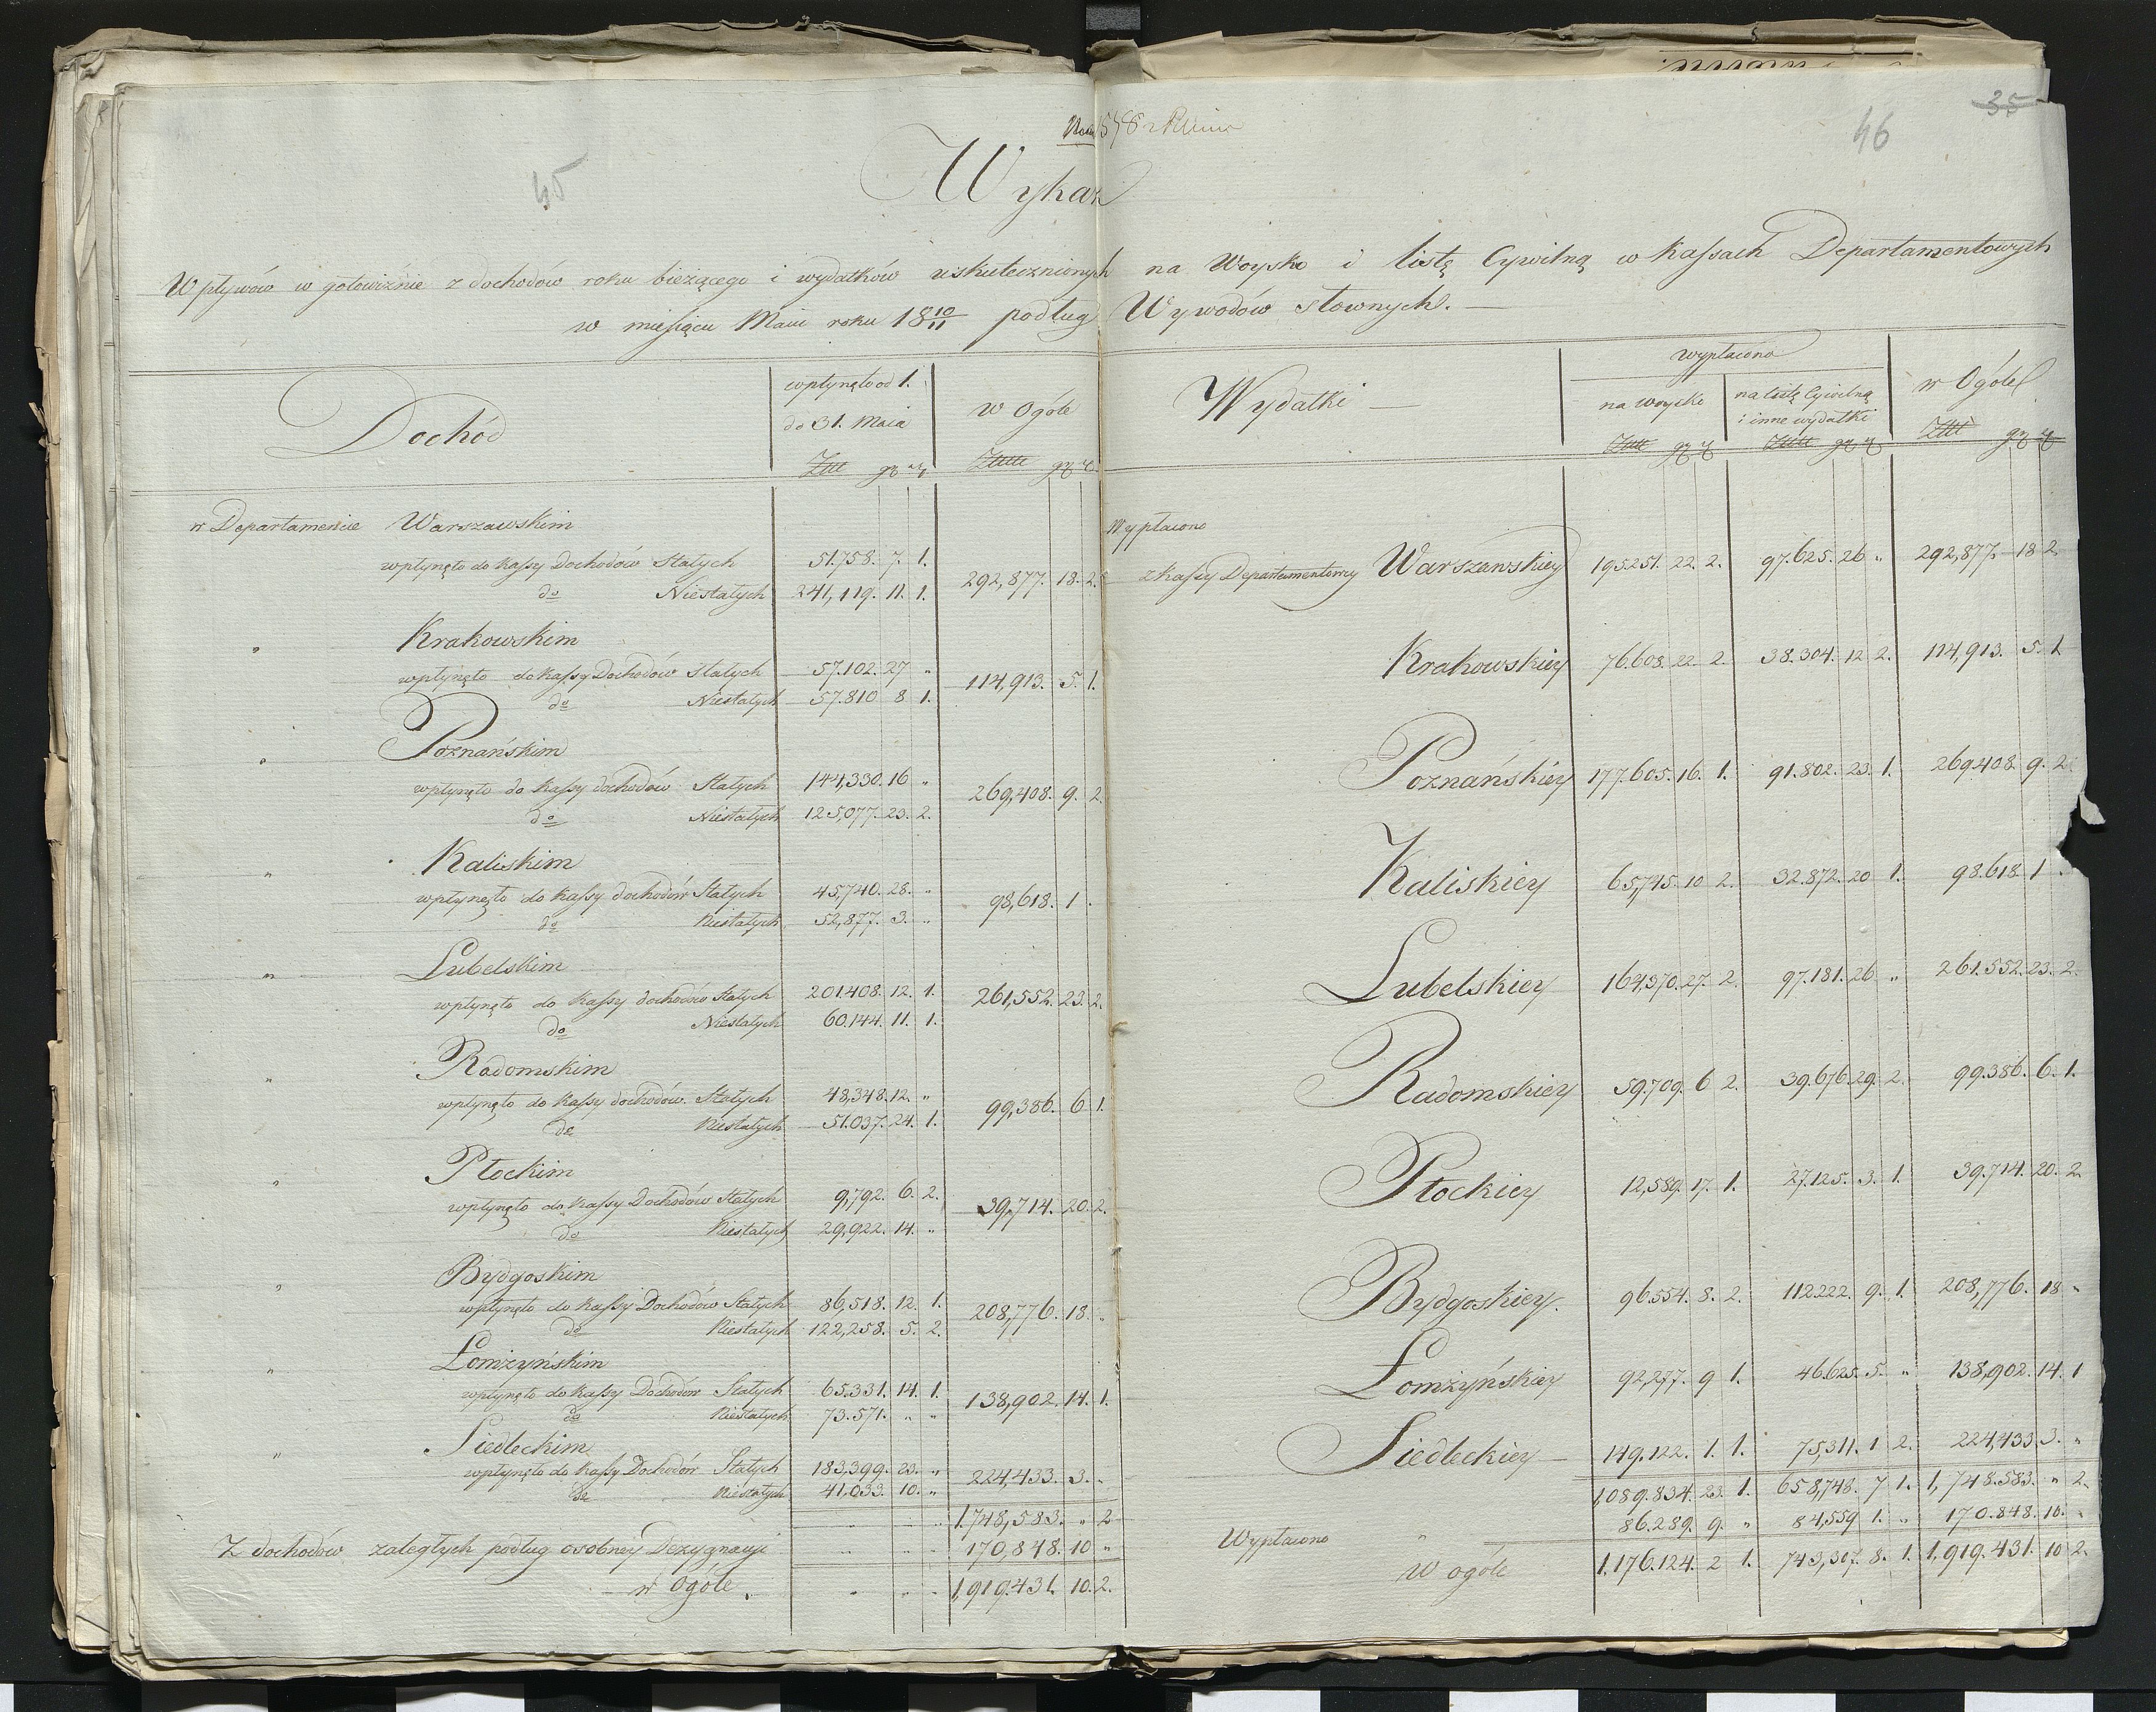 45
46
35
Wykaz
Wpływów w gotowiźnie z dochodów roku bieżącego i wydatków uskutecznionych na Woysko i listę Cywilną w Kassach Departamentowych
w miesiącu Maiu roku 18 10/11 podług Wywodów słownych. —
Dochód
wpłynęło od 1.
do 31. Maia
w Ogóle
w Departamencie Warszawskim
wpłynęło do Kassy Dochodów Stałych 51.758. 7. 1.
do Niestałych 241,119. 11. 1. 292,877. 18. 2.
" Krakowskim
wpłynęło do Kassy Dochodów Stałych 57.102. 27 "
do Niestałych 57.810 8 1. 114,913. 5. 1.
" Poznańskim
wpłynęło do Kassy dochodów Stałych 144,330. 16 "
do Niestałych 125,077. 23. 2. 269,408. 9. 2.
" Kaliskim
wpłynęło do Kassy dochodów Stałych 45,740. 28. "
do Niestałych 52,877. 3. " 98,618. 1 .
" Lubelskim
wpłynęło do Kassy dochodów Stałych 201.408. 12. 1.
do Niestałych 60.144. 11. 1. 261,552. 23. 2.
" Radomskim
wpłynęło do Kassy dochodów Stałych 48,348. 12. "
do Niestałych 51.037. 24. 1. 99,386. 6 1.
" Płockim
wpłynęło do Kassy Dochodów Stałych 9,792. 6. 2.
do Niestałych 29,922. 14. " 39,714. 20. 2.
" Bydgoskim
wpłynęło do Kassy Dochodów Stałych 86,518. 12. 1.
do Niestałych 122,258. 5. 2. 208,776. 18. "
" Łomżyńskim
wpłynęło do Kassy Dochodów Stałych 65.331. 14. 1.
do Niestałych 73.571. " " 138,902. 14. 1.
" Siedleckim
wpłynęło do Kassy Dochodów Stałych 183,399. 23. "
do Niestałych 41,033. 10. " 224,433. 3. "
" " " 1.748,583. " 2
Z dochodów zaległych podług osobney Dezygnacji " " " 170,848. 10 "
w Ogóle. " " " 1,919.431. 10. 2.
Wydatki —
wypłacono
na woysko
na listę Cywilną
i inne wydatki
w Ogóle
Wypłacono
z kassy Departamentowey Warszawskiey 195.251. 22. 2. 97.625. 26 " 292,877. 18 2.
Krakowskiey 76.608. 22 2. 38.304. 12 2. 114,913. 5. 1
Poznańskiey 177.605. 16. 1. 91.802. 23. 1. 269.408. 9. 2.
Kaliskiey 65,745. 10 2. 32.872. 20 1. 98.618. 1 .
Lubelskiey 164,370. 27. 2. 97.181. 26 " 261.552. 23. 2.
Radomskiey 59.709. 6 2. 39.676. 29. 2. 99.386. 6. 1.
Płockiey 12,589. 17. 1. 27.125. 3. 1. 39.714. 20. 2.
Bydgoskiey. 96.554. 8. 2. 112.222. 9. 1. 208,776. 18 "
Łomżyńskiey 92,277. 9 1. 46.625. 5. " 138,902. 14. 1
Siedleckiey — 149.122. 1. 1. 75,311. 1 2. 224,433. 3. "
1,089.834. 23. 1. 658,748. 7 1. 1,748.583. " 2.
Wypłacono " 86.289. 9. " 84,559 1. " 170.848. 10. "
W ogóle 1.176.124. 2 1. 743,307. 8. 1. 1,919.431. 10 2.